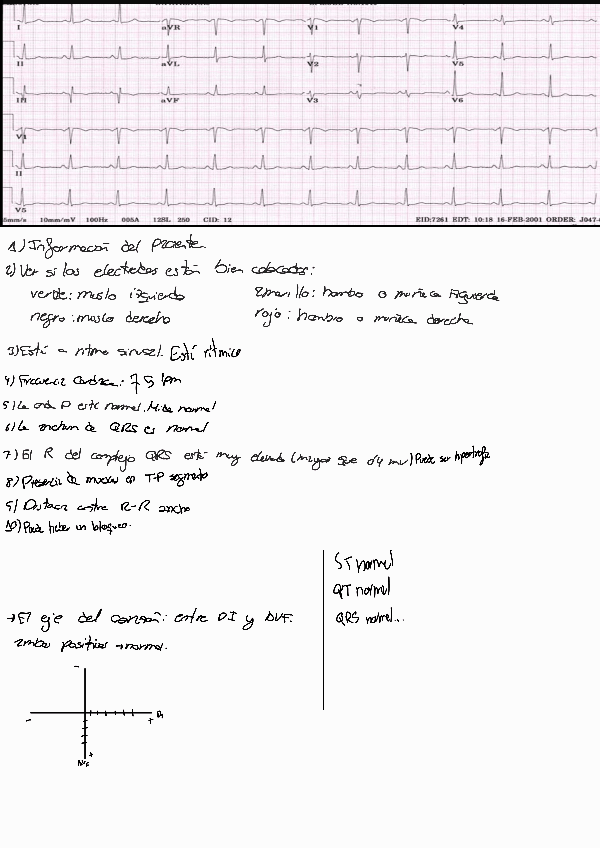 I aVR V1 V4
II aVL V2 V5
III aVF V3 V6
V1
II
V5
5mm/s 10mm/mV 100Hz 005A 12SL 250 CID: 12 EID:7261 EDT: 10:18 16-FEB-2001 ORDER: J047-
1) Información del Paciente.
2) Ver si los electrodos están bien colocados:
verde: muslo izquierdo amarillo: hombro o muñeca izquierda
negro: muslo derecho rojo: hombro o muñeca derecha
3) Está en ritmo sinusal. Está rítmico
4) Frecuencia Cardiaca: 75 lpm
5) La onda P está normal. Mide normal
6) La anchura de QRS es normal
7) El R del complejo QRS está muy elevado (mayor que 0'4 mv) Puede ser hipertrofia
8) Presencia de muescas en T-P segmento
9) Distancia entre R-R ancha
10) Puede haber un bloqueo.
ST normal
QT normal
QRS normal...
→ El eje del corazón: entre DI y AVF.
ambos positivos → normal.
-
- + DI
+
AVF